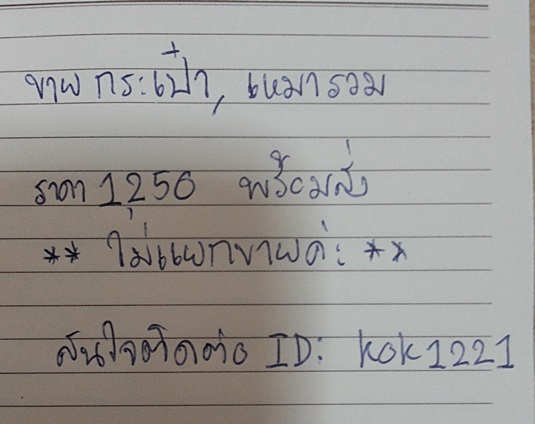 ขาย กระเป๋า, เหมารวม
ราคา 1,250 พร้อมส่ง
** ไม่แยกขายค่ะ **
สนใจติดต่อ ID: kok1221